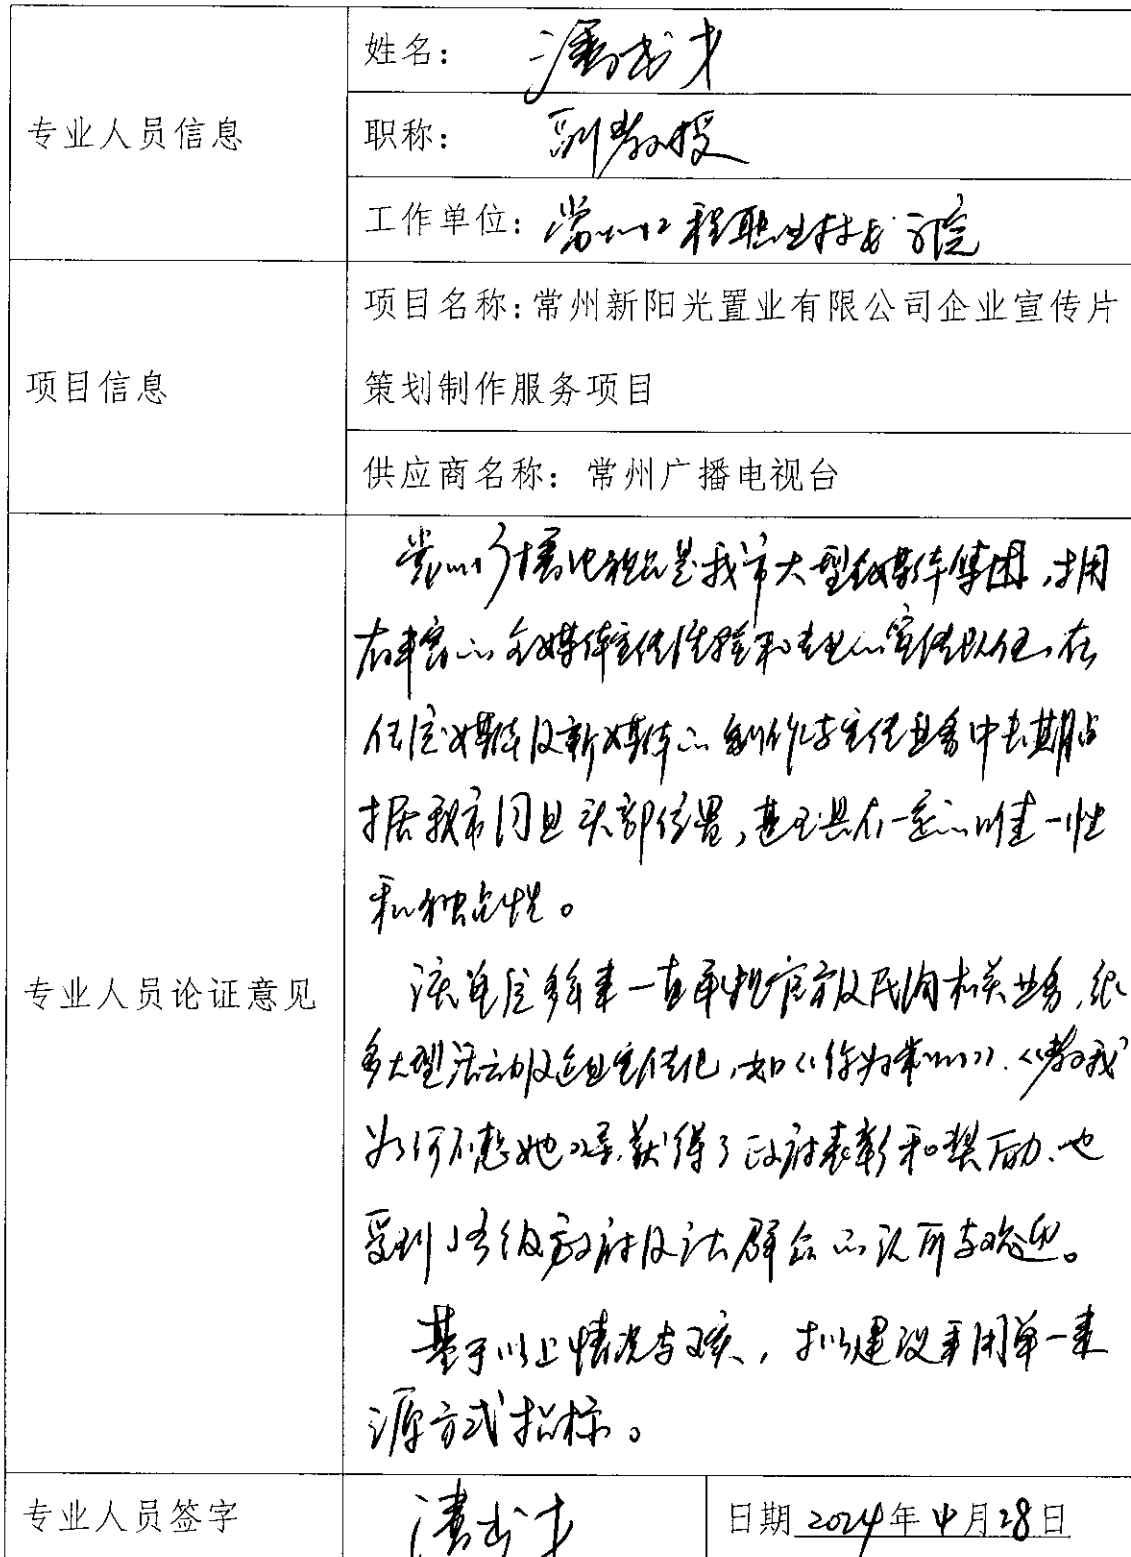 姓名：潘书才
专业人员信息
职称：副教授
工作单位：常州工程职业技术学院
项目名称：常州新阳光置业有限公司企业宣传片
项目信息
策划制作服务项目
供应商名称：常州广播电视台
常州广播电视台是我市大型全媒体集团，拥
有丰富的全媒体宣传经验和专业的宣传队伍，在
传统媒体及新媒体的制作与宣传业务中长期占
据我市同业头部位置，甚至具有一定的唯一性
和独占性。
专业人员论证意见
该单位多年来一直承担官方及民间相关业务，很
多大型活动及企业宣传片，如《你好常州》、《教我
如何不想她》等，获得了政府表彰和奖励，也
受到了各级政府及广大群众的认可与欢迎。
基于以上情况，拟建议采用单一来
源方式招标。
专业人员签字 潘书才 日期 2024年4月28日